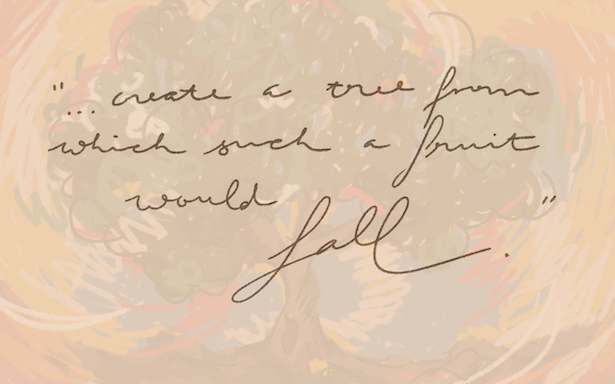 "... create a tree from
which such a fruit
would
fall."